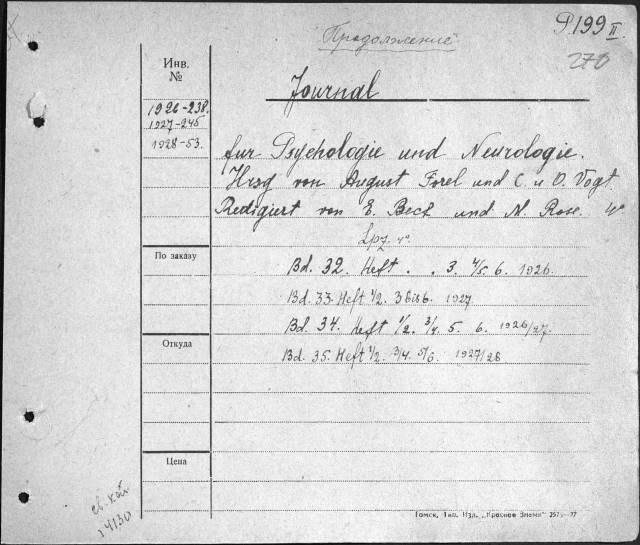 Продолжение
P199 II
270
Инв.
№
Journal
1926-238.
1927-245
1928-53.
fur Psychologie und Neurologie.
Hrsg von August Forel und C. u O. Vogt.
Redigiert von E. Beck und M. Rose.
Lpz. 4°
По заказу
Bd. 32. Heft . . 3. 4/5. 6. 1926.
Bd. 33. Heft 1/2. 3 bis 6. 1927
Bd. 34. Heft 1/2. 3/4. 5. 6. 1926/27.
Откуда
Bd. 35. Heft 1/2. 3/4. 5/6. 1927/28
Цена
4130
Томск, Тип. Изд. „Красное Знамя"